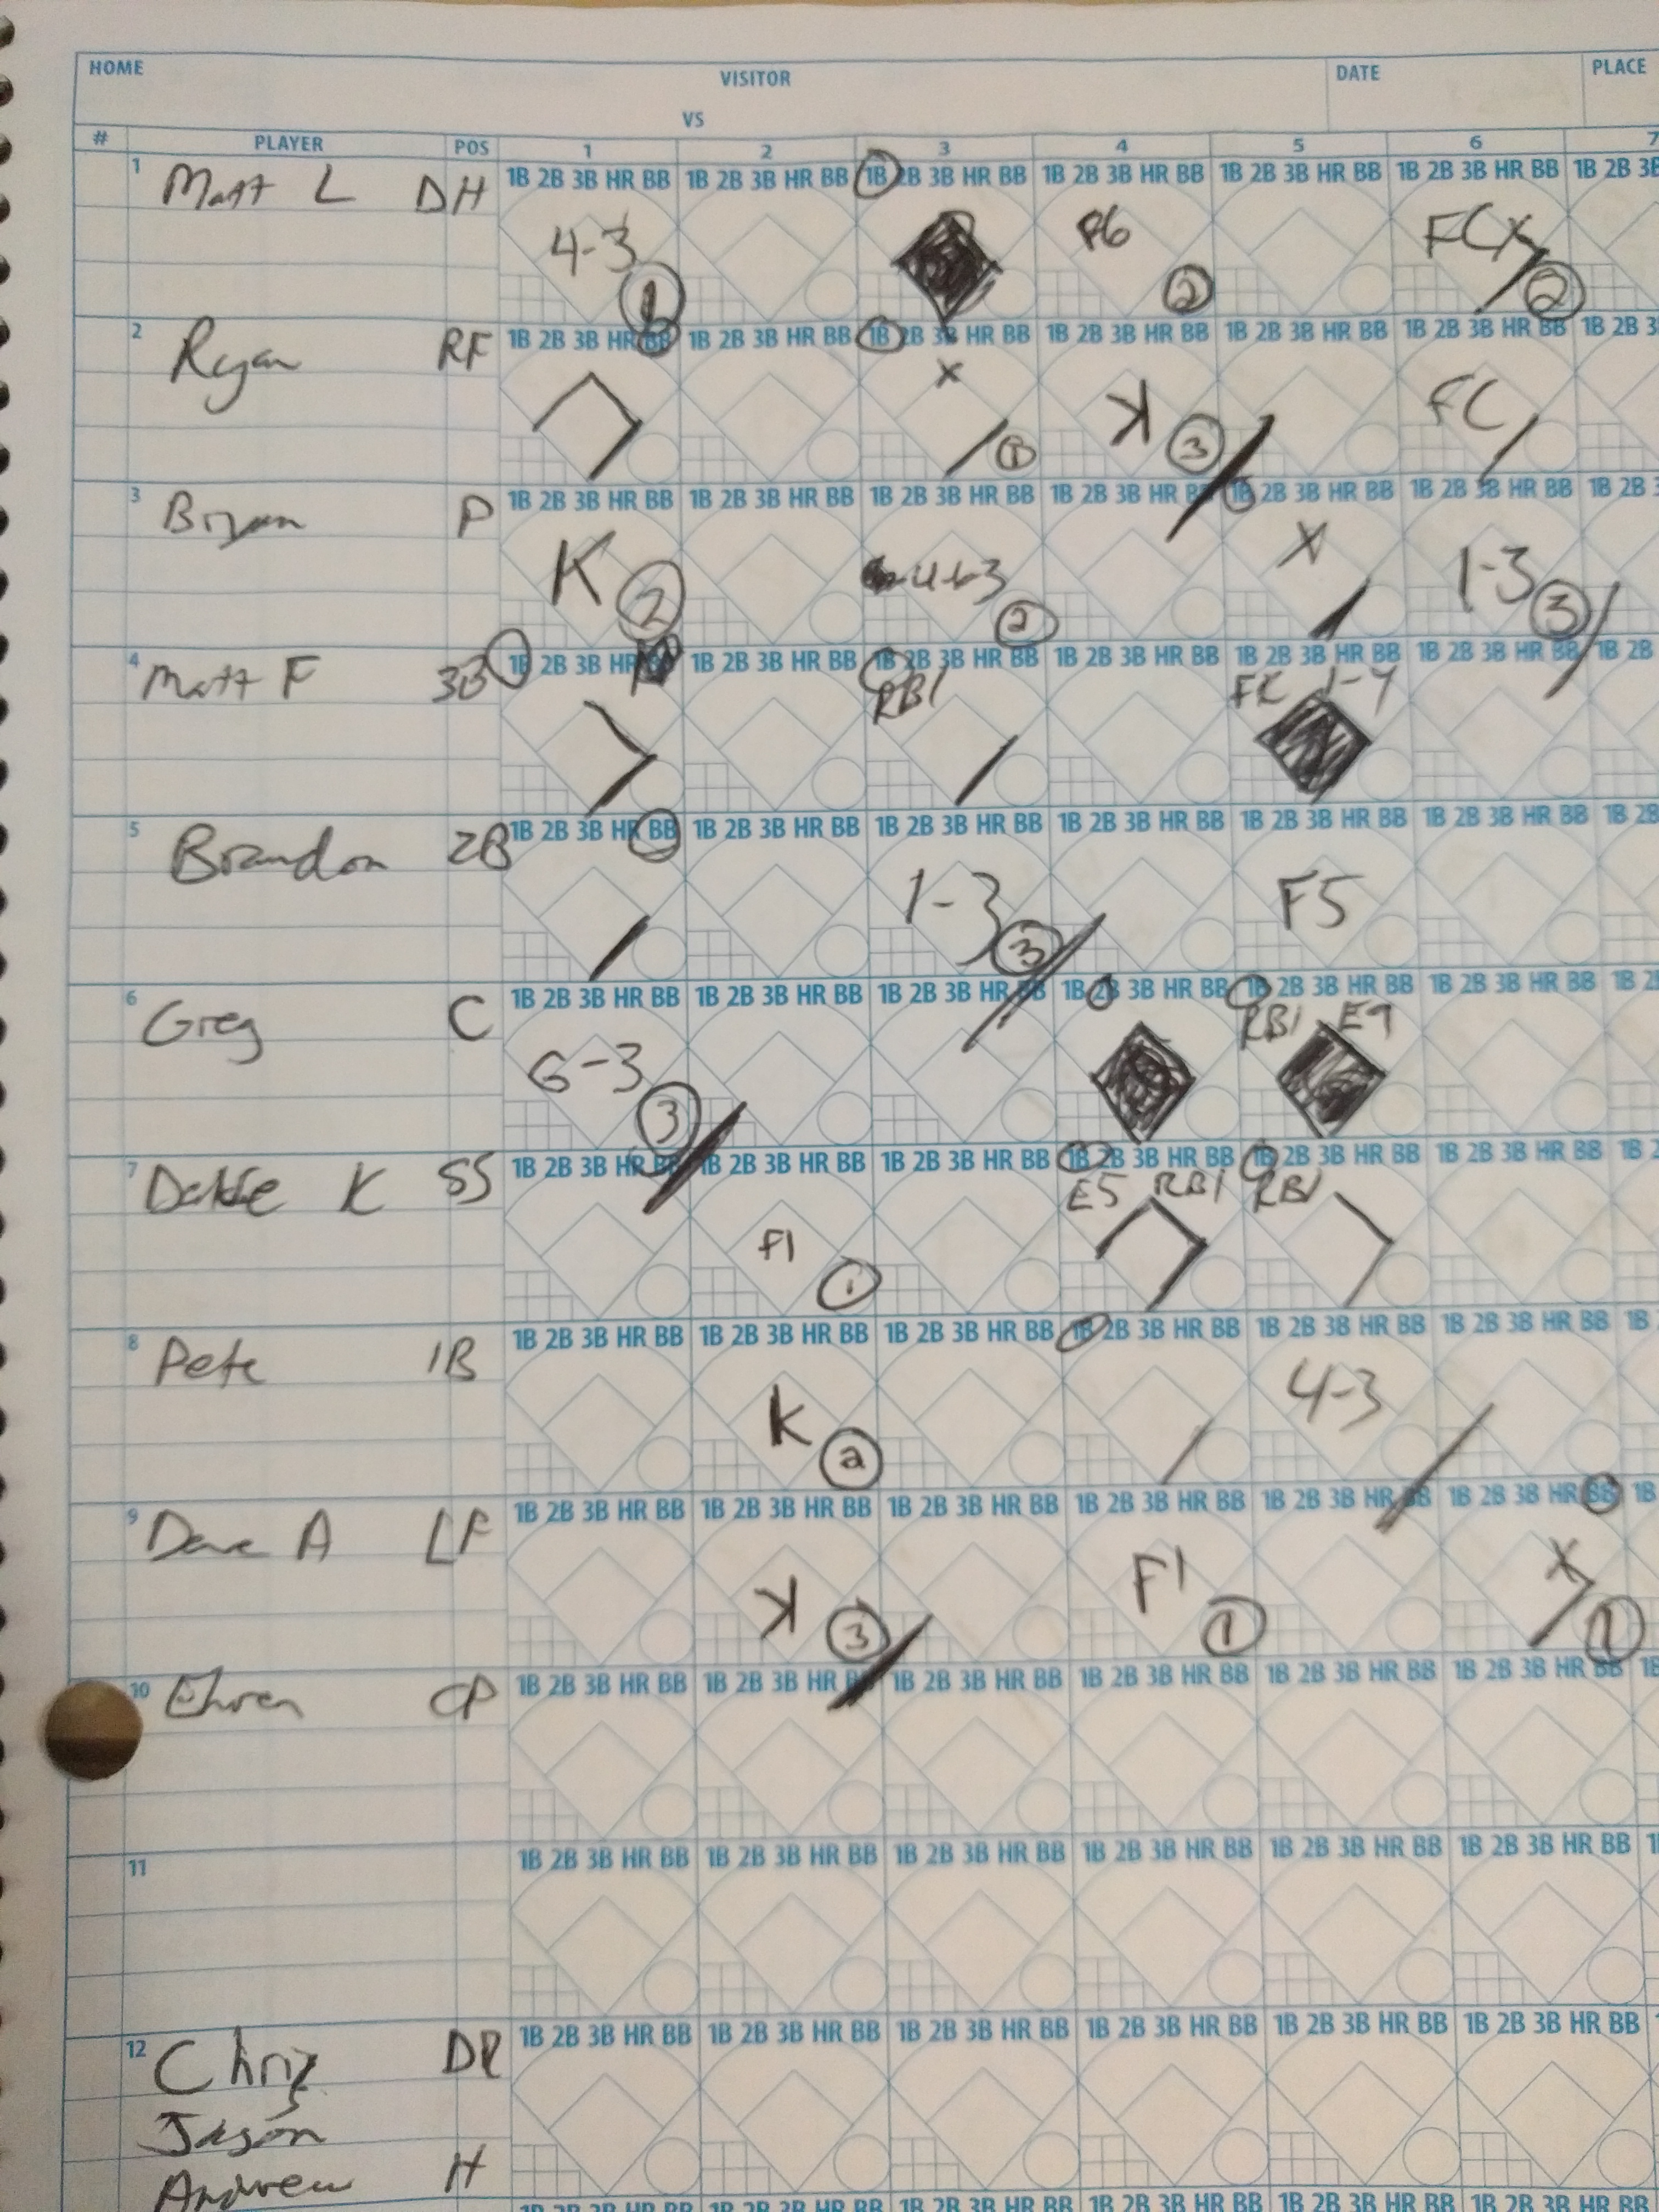 HOME VISITOR DATE PLACE
VS
# PLAYER POS 1 2 3 4 5 6 7
1 Matt L DH 1B 2B 3B HR BB 1B 2B 3B HR BB 1B 2B 3B HR BB 1B 2B 3B HR BB 1B 2B 3B HR BB 1B 2B 3B HR BB 1B 2B 3B
4-3 1 F6 2 FC X 2
2 Ryan RF 1B 2B 3B HR BB 1B 2B 3B HR BB 1B 2B 3B HR BB 1B 2B 3B HR BB 1B 2B 3B HR BB 1B 2B 3B HR BB 1B 2B 3
X 1 K 3 FC
3 Bryan P 1B 2B 3B HR BB 1B 2B 3B HR BB 1B 2B 3B HR BB 1B 2B 3B HR BB 1B 2B 3B HR BB 1B 2B 3B HR BB 1B 2B
K 2 4-6-3 2 X 1-3 3
4 Matt F 3B 1B 2B 3B HR 1B 2B 3B HR BB 1B 2B 3B HR BB 1B 2B 3B HR BB 1B 2B 3B HR BB 1B 2B 3B HR BB 1B 2B
RBI FC 1-4
5 Brandon 2B 1B 2B 3B HR BB 1B 2B 3B HR BB 1B 2B 3B HR BB 1B 2B 3B HR BB 1B 2B 3B HR BB 1B 2B 3B HR BB 1B 2B
1-3 3 F5
6 Greg C 1B 2B 3B HR BB 1B 2B 3B HR BB 1B 2B 3B HR BB 1B 2B 3B HR BB 1B 2B 3B HR BB 1B 2B 3B HR BB 1B 2
6-3 3 RBI E9
7 K SS 1B 2B 3B HR BB 1B 2B 3B HR BB 1B 2B 3B HR BB 1B 2B 3B HR BB 1B 2B 3B HR BB 1B 2B 3B HR BB 1B 2
F1 1 E5 RBI RBI
8 Pete 1B 1B 2B 3B HR BB 1B 2B 3B HR BB 1B 2B 3B HR BB 1B 2B 3B HR BB 1B 2B 3B HR BB 1B 2B 3B HR BB 1B
K 2 4-3
9 Dave A LF 1B 2B 3B HR BB 1B 2B 3B HR BB 1B 2B 3B HR BB 1B 2B 3B HR BB 1B 2B 3B HR BB 1B 2B 3B HR BB 1B
K 3 F1 1 X 1
10 Ehren CP 1B 2B 3B HR BB 1B 2B 3B HR BB 1B 2B 3B HR BB 1B 2B 3B HR BB 1B 2B 3B HR BB 1B 2B 3B HR BB 1B
11 1B 2B 3B HR BB 1B 2B 3B HR BB 1B 2B 3B HR BB 1B 2B 3B HR BB 1B 2B 3B HR BB 1B 2B 3B HR BB
12 Chris 1B 2B 3B HR BB 1B 2B 3B HR BB 1B 2B 3B HR BB 1B 2B 3B HR BB 1B 2B 3B HR BB 1B 2B 3B HR BB
Jason
Andrew H
1B 2B 3B HR BB 1B 2B 3B HR BB 1B 2B 3B HR BB 1B 2B 3B HR BB 1B 2B 3B HR BB 1B 2B 3B HR BB